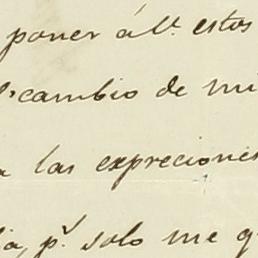 poner á V. estos
cambio de mi
las expreciones
pr. solo me q